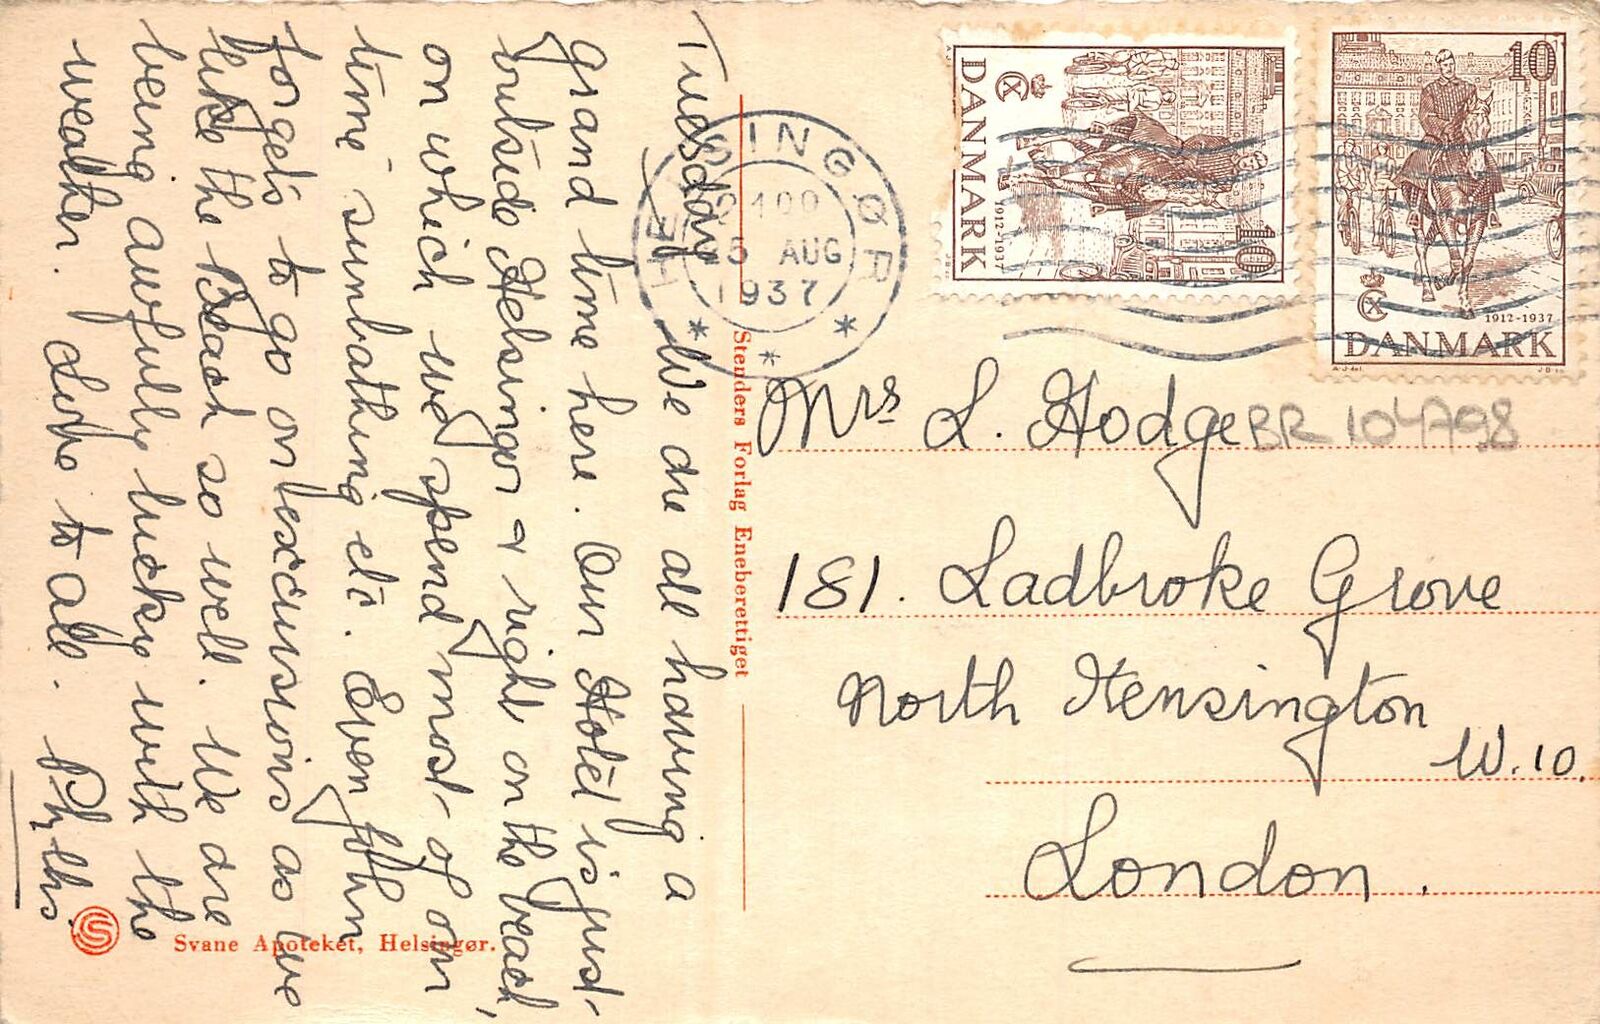 Tuesday
We are all having a
grand time here. Our Hotel is just
outside Helsingor & right on the beach,
on which we spend most of our
time sunbathing etc. Even John
forgets to go on excursions as we
like the Beach so well. We are
being awfully lucky with the
weather. Love to all. Phyllis.
Mrs L. Hodge
181. Ladbroke Grove
North Kensington
W.10.
London.
BR 104798
HELSINGØR
25 AUG
1937
* * *
DANMARK
1912-1937
10
10
1912-1937
DANMARK
Stenders Forlag Eneberettiget
Svane Apoteket, Helsingør.